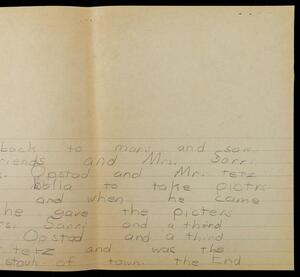 back to mars and saw
friends and Mrs. Sorri
s. Opstad and Mr. tetz
to take pictrs
and when he came
he gave the picters
rs. Sarri and a third
Opstad and a third
tetz and was the
of town. the End